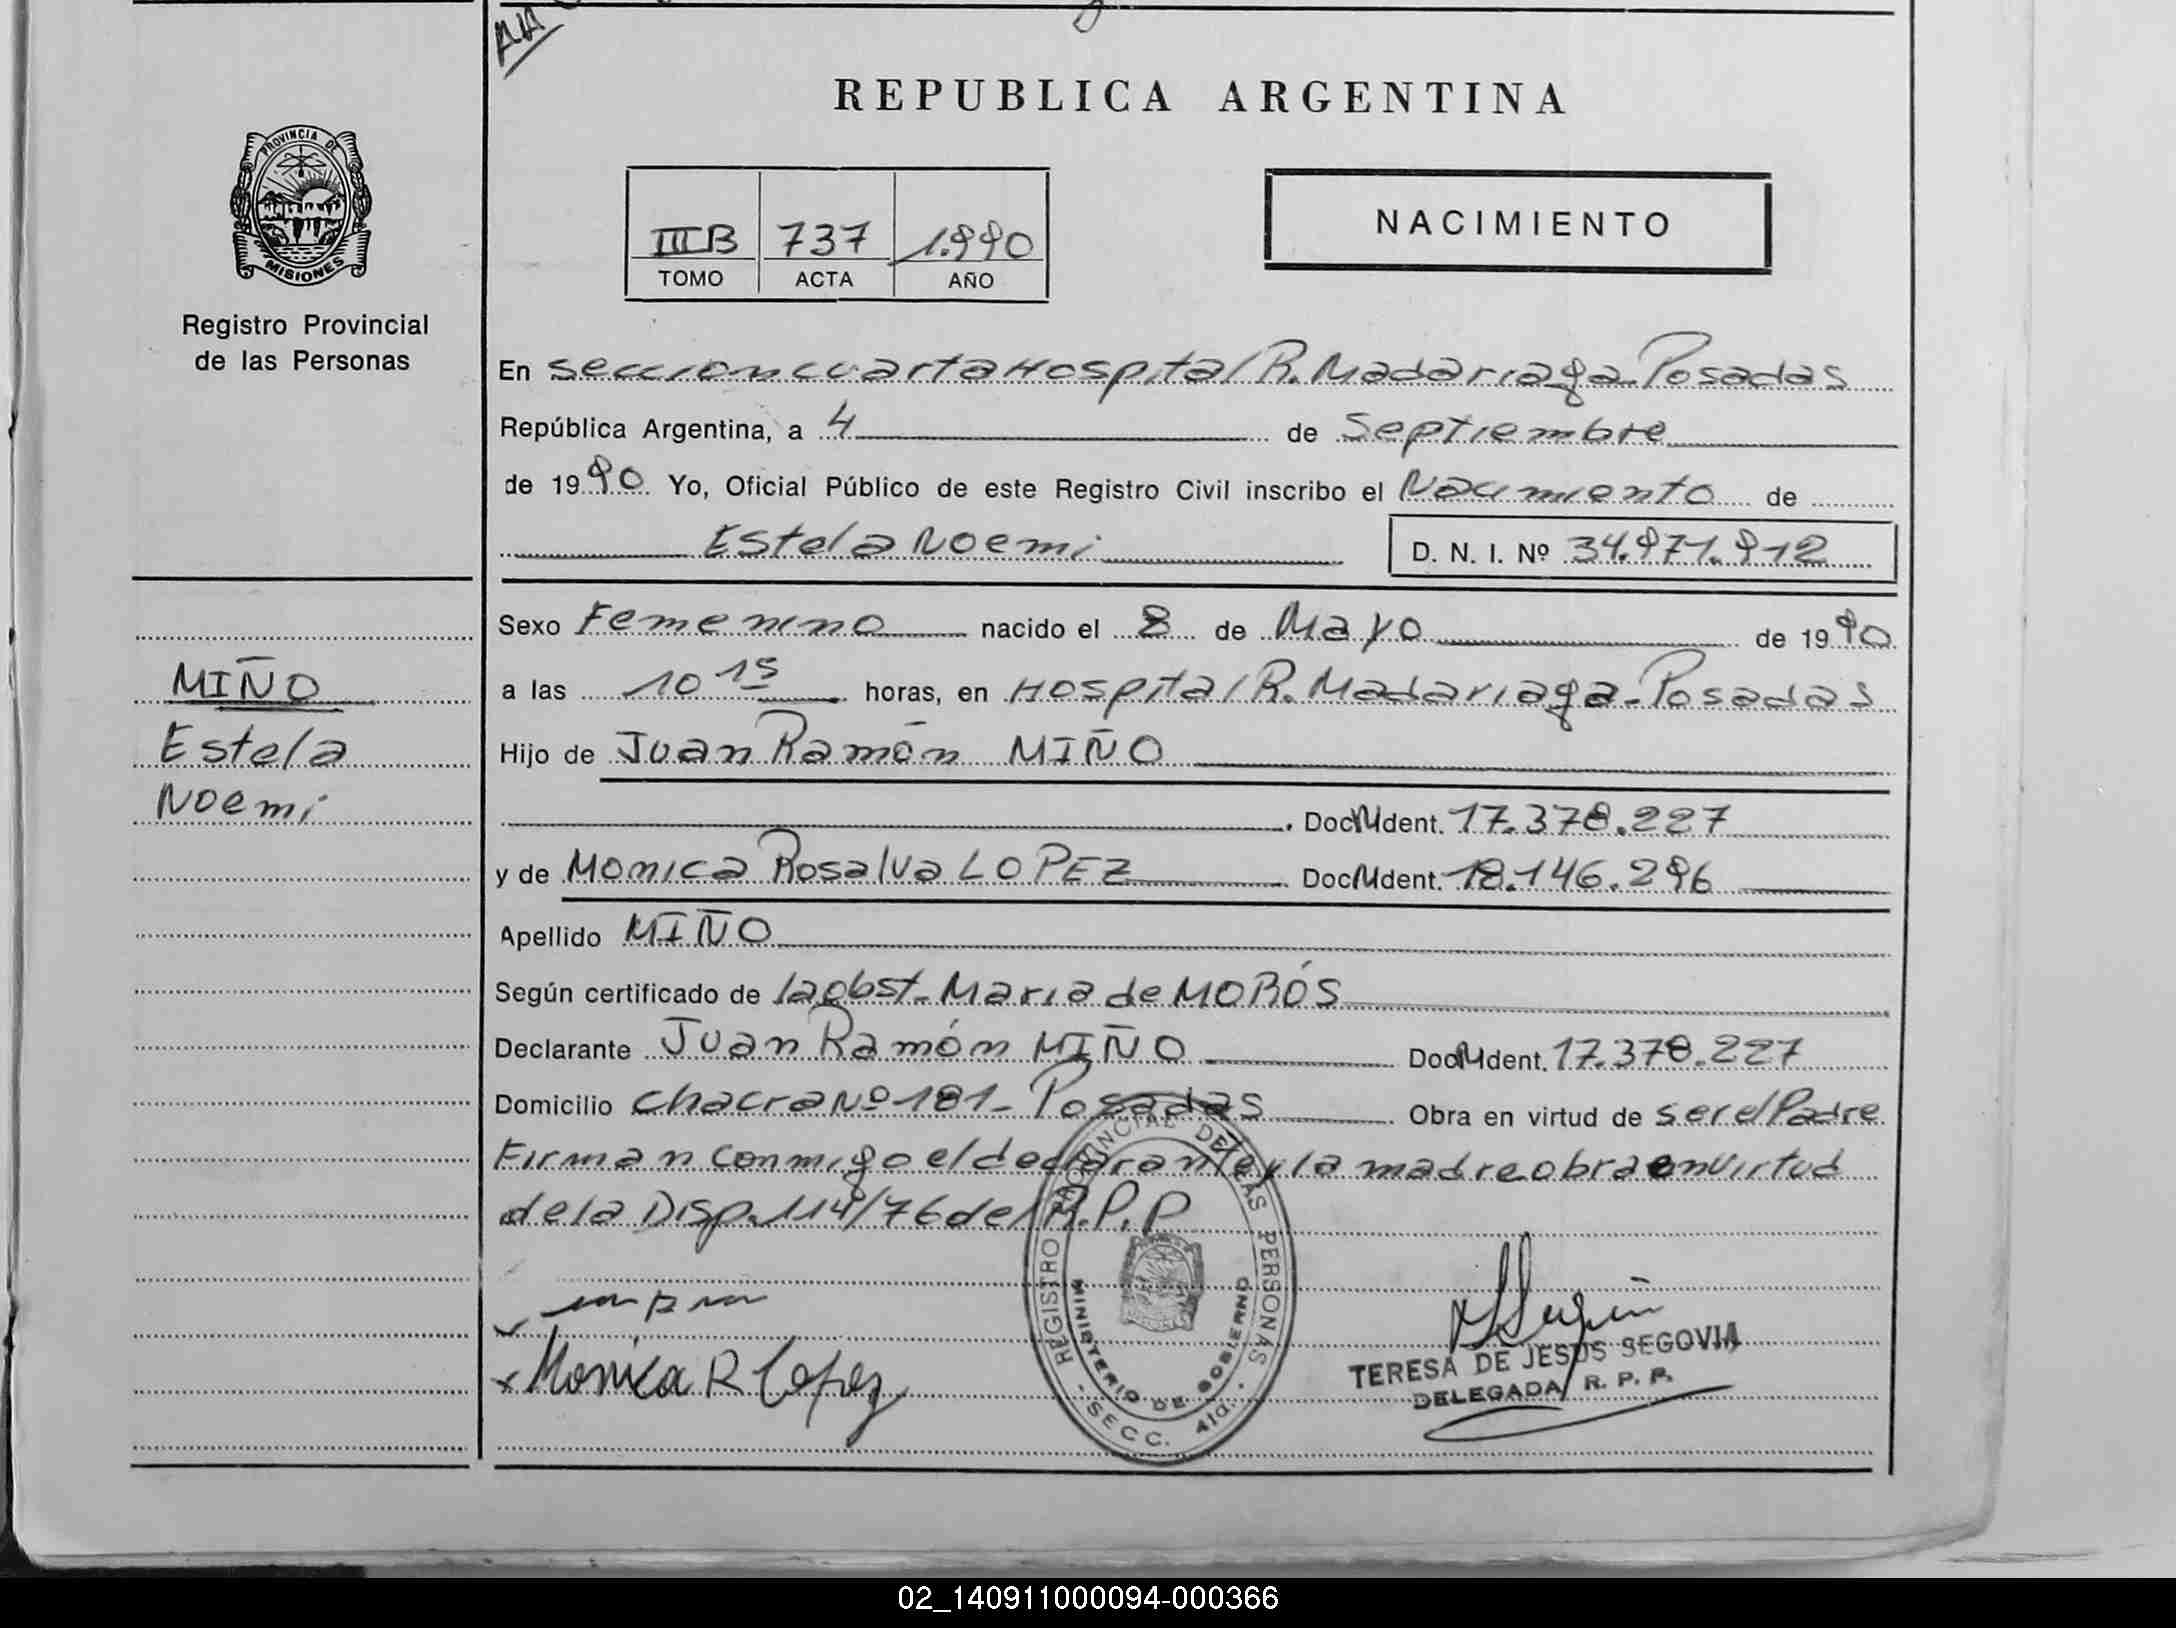 REPUBLICA ARGENTINA
PROVINCIA DE
MISIONES
Registro Provincial
de las Personas
III B 737 1.990
TOMO ACTA AÑO
NACIMIENTO
En seccion cuarta Hospital R. Madariaga - Posadas
República Argentina, a 4 de Septiembre
de 1990 Yo, Oficial Público de este Registro Civil inscribo el Nacimiento de
Estela Noemi D. N. I. Nº 34.971.912
Sexo Femenino nacido el 8 de Mayo de 1990
a las 10 15 horas, en Hospital R. Madariaga - Posadas
Hijo de Juan Ramón MIÑO
Doc. Ident. 17.378.227
y de Monica Rosalva LOPEZ Doc. Ident. 18.146.296
Apellido MIÑO
Según certificado de la obst. Maria de MOROS
Declarante Juan Ramón MIÑO Doc. Ident. 17.378.227
Domicilio chacra Nº 181 - Posadas Obra en virtud de ser el Padre
Firman conmigo el declarante y la madre obra en virtud
de la Disp. 114/76 del R.P.P
MIÑO
Estela
Noemi
Monica R Lopez
REGISTRO PROVINCIAL DE LAS PERSONAS
MINISTERIO DE GOBIERNO
SECC. 4ta.
TERESA DE JESUS SEGOVIA
DELEGADA R. P. P.
02_140911000094-000366